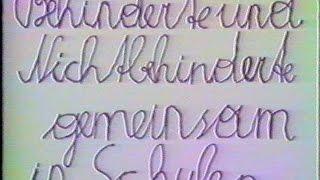 Behinderte und
Nichtbehinderte
gemeinsam
in Schulen